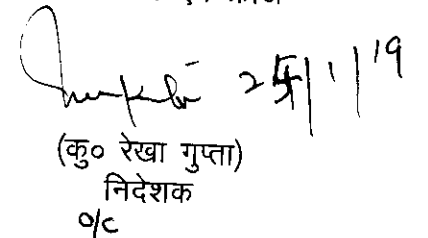 25/1/19
(कु० रेखा गुप्ता)
निदेशक
o/c